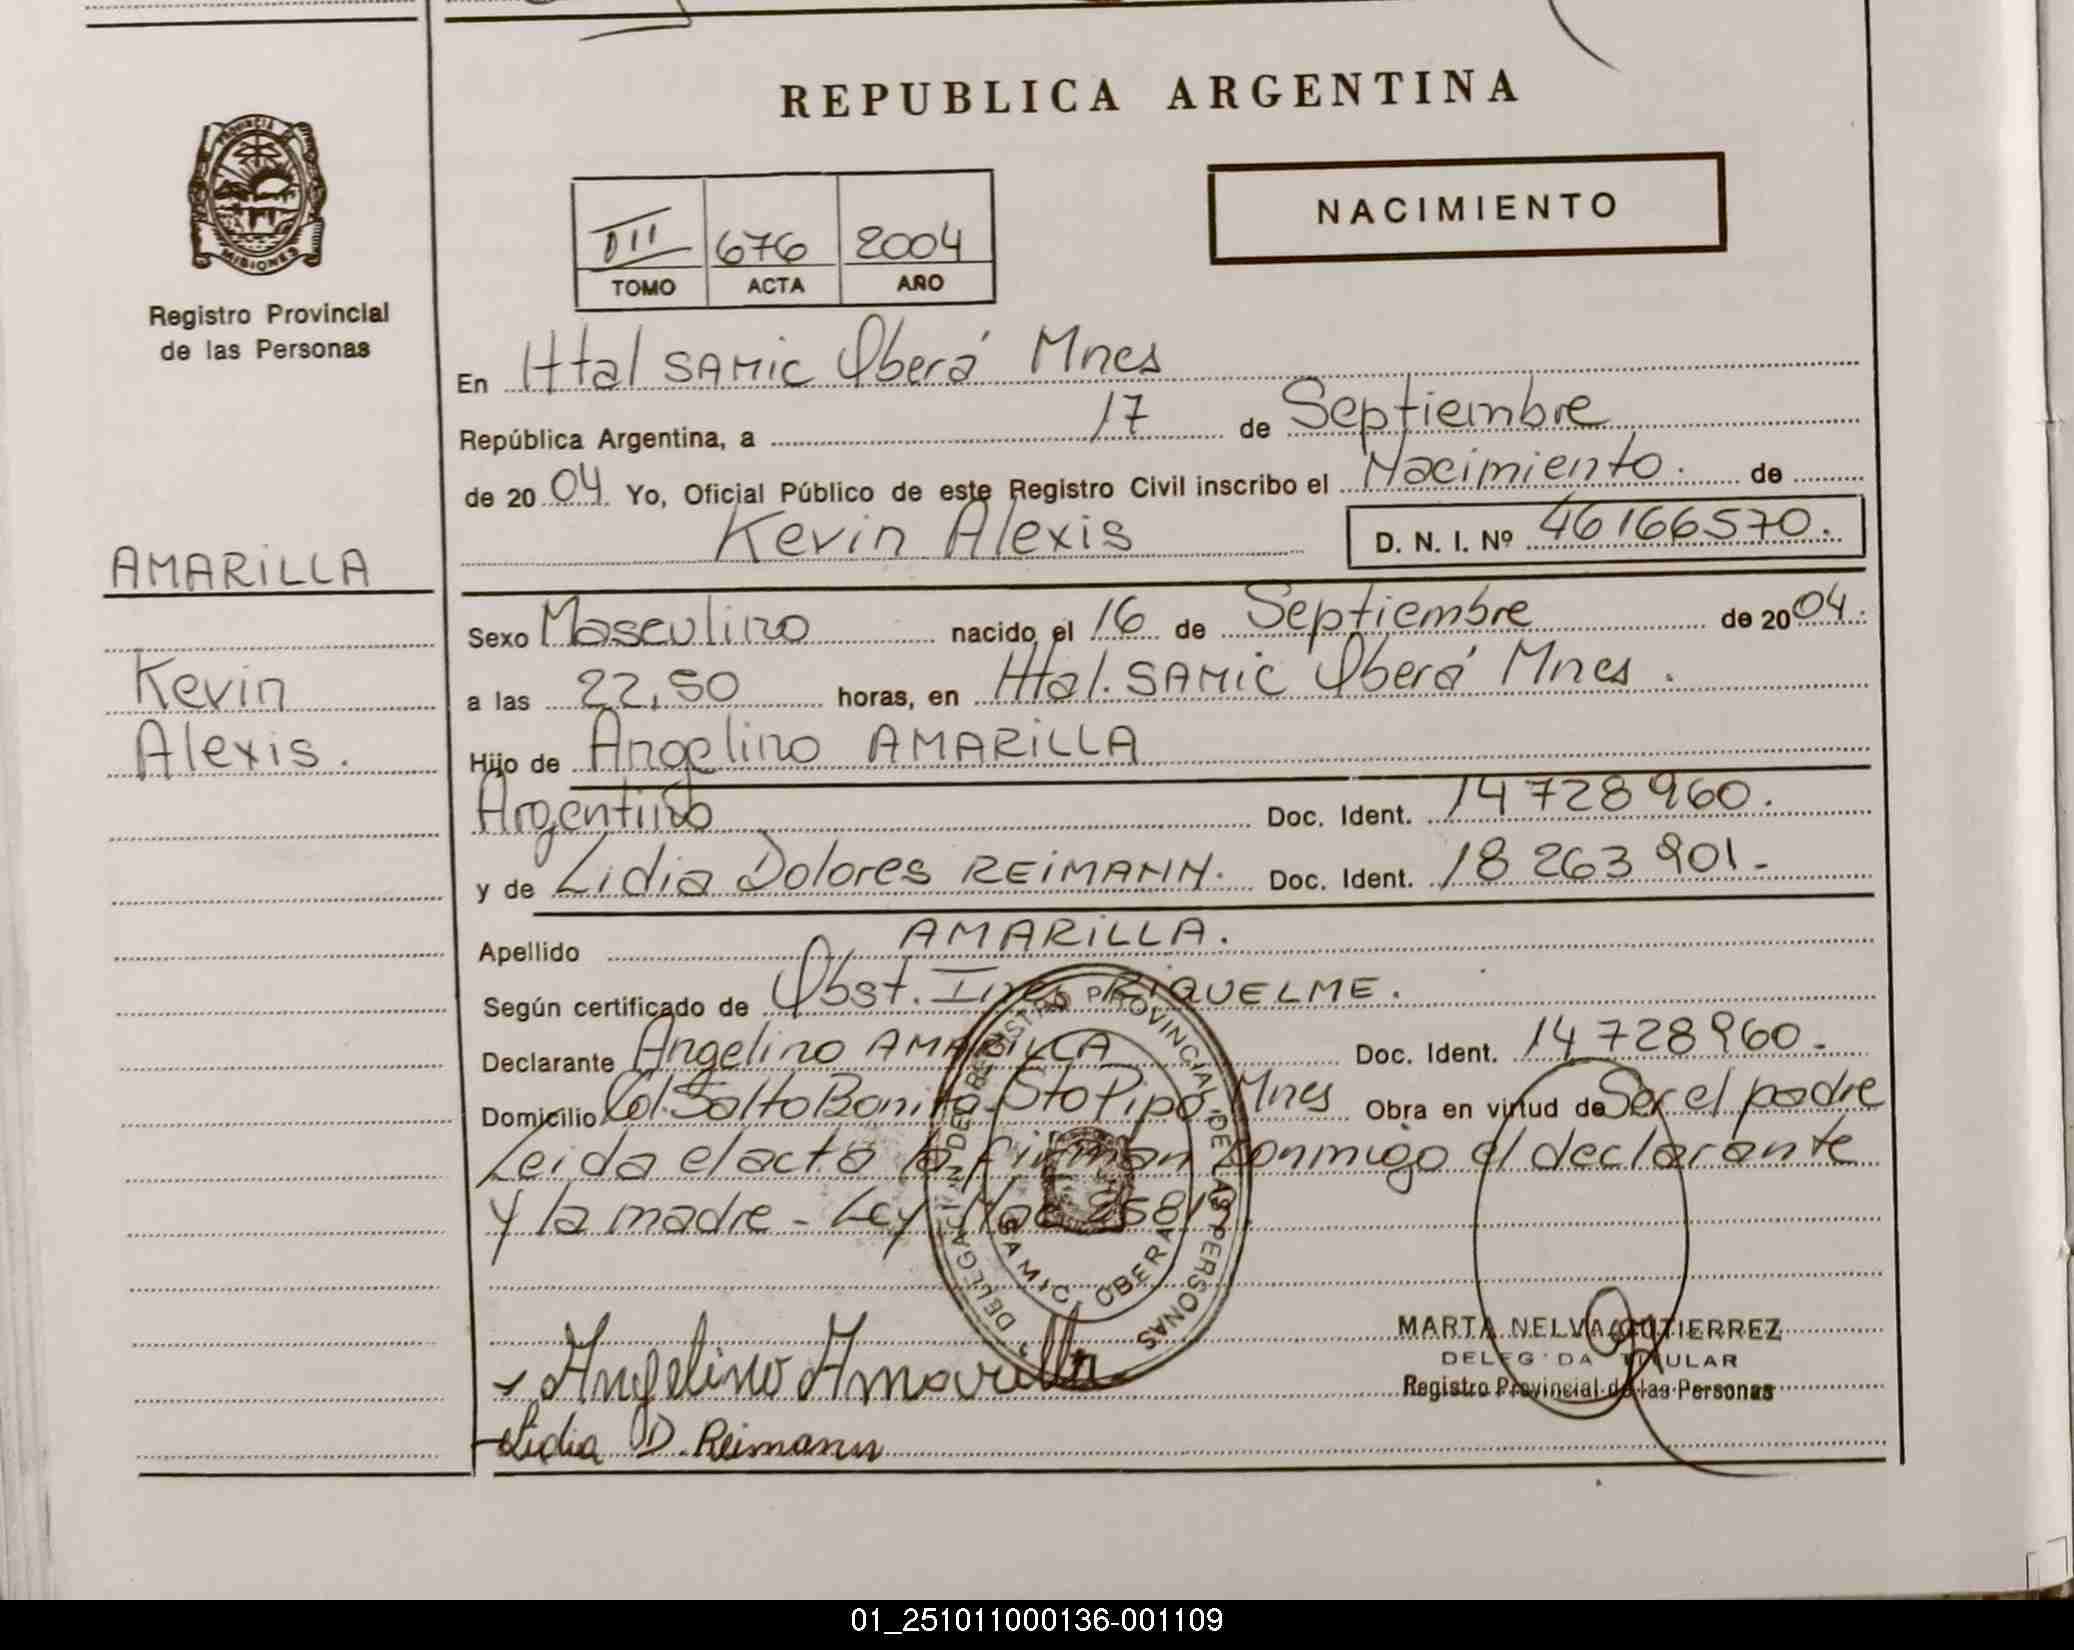 REPUBLICA ARGENTINA
PROVINCIA DE
MISIONES
Registro Provincial
de las Personas
NACIMIENTO
III 676 2004
TOMO ACTA AÑO
En Htal SAMIC Oberá Mnes
República Argentina, a 17 de Septiembre
de 2004. Yo, Oficial Público de este Registro Civil inscribo el Nacimiento. de
Kevin Alexis D. N. I. Nº 46166570.
AMARILLA
Kevin
Alexis.
Sexo Masculino nacido el 16 de Septiembre de 2004.
a las 22,50 horas, en Htal. SAMIC Oberá Mnes.
Hijo de Angelino AMARILLA
Argentino Doc. Ident. 14728960.
y de Lidia Dolores REIMANN. Doc. Ident. 18263901-
Apellido AMARILLA.
Según certificado de Obst. Ines RIQUELME.
Declarante Angelino AMARILLA Doc. Ident. 14728960-
Domicilio Col. Salto Bonito Sto Pipo Mnes Obra en virtud de Ser el padre
Leida el acta la firman conmigo el declarante
y la madre - Ley Nac 25819.
REGISTRO PROVINCIAL DE LAS PERSONAS
SAMIC OBERA
Angelino Amarilla
Lidia D. Reimann
MARTA NELVA GUTIERREZ
DELEGADA TITULAR
Registro Provincial de las Personas
01_251011000136-001109